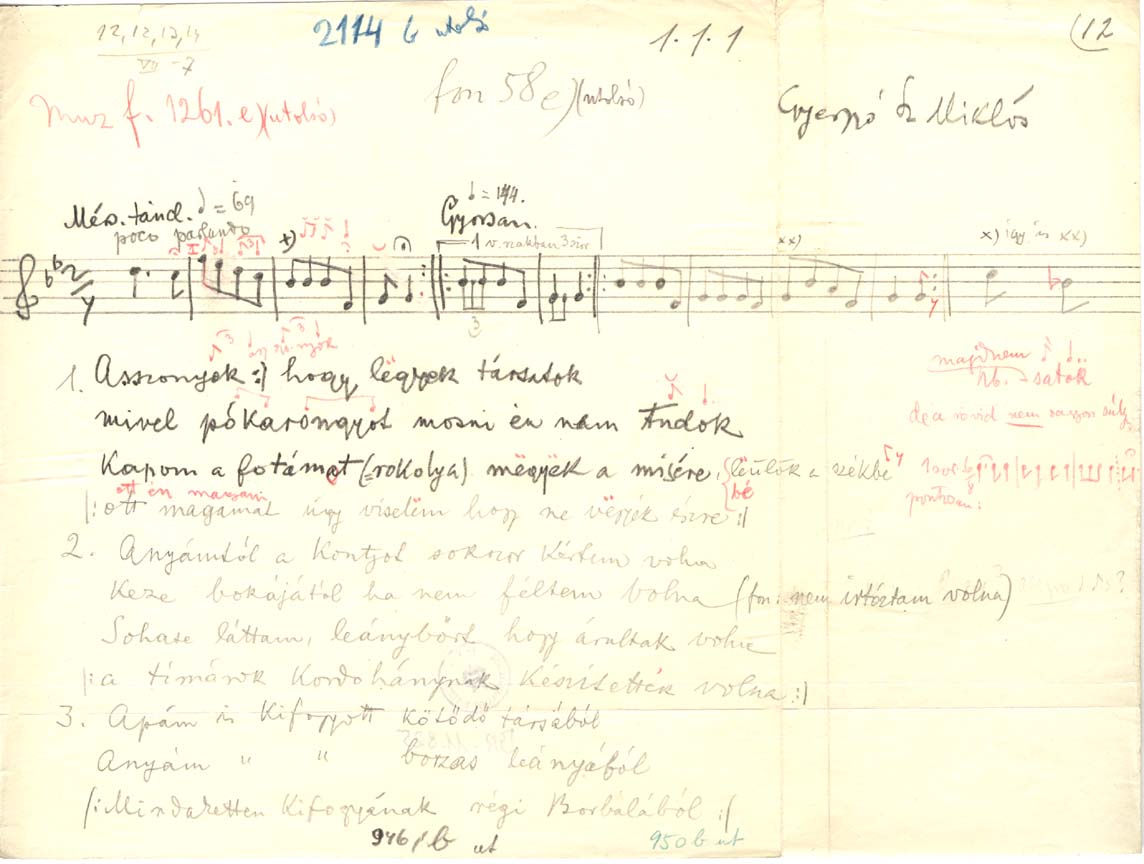 12, 12, 12, 14
VII -7
2114 b utolsó
1.1.1
(12
Muz f. 1261. e)(utolsó)
fon 58 e)(utolsó)
Gyergyó Sz Miklós
= 69
poco parlando
+)
= 144.
Gyorsan.
1 v. szakban 3szor
xx)
x) így is xx)
3
1. Asszonyok :) hogy lëgyek társatok
majdnem
nb. -satok
mivel pókaróngyot mosni én nam tudok
de a rövid nem
Kapom a fotámot (=rokolya) mëgyëk a misére, leülök a székbe
bé
1 sor
pontosan:
ott én magam
|: ott magamat úgy viselëm hogy ne vëgyék észre :|
2. Anyámtól a kontyot sokszor kértem volna
Keze bokájától ha nem féltem volna (fon: nem irtóztam volna)
Sohase láttam, leánybőrt hogy árultak volna
|: a tímárok Kordohánynak készítették volna :|
3. Apám is kifogyott kötődő társából
Anyám " " borzas leányából
|: Mindaketten kifogyának régi Borbálából :|
946/b ut
950 b ut